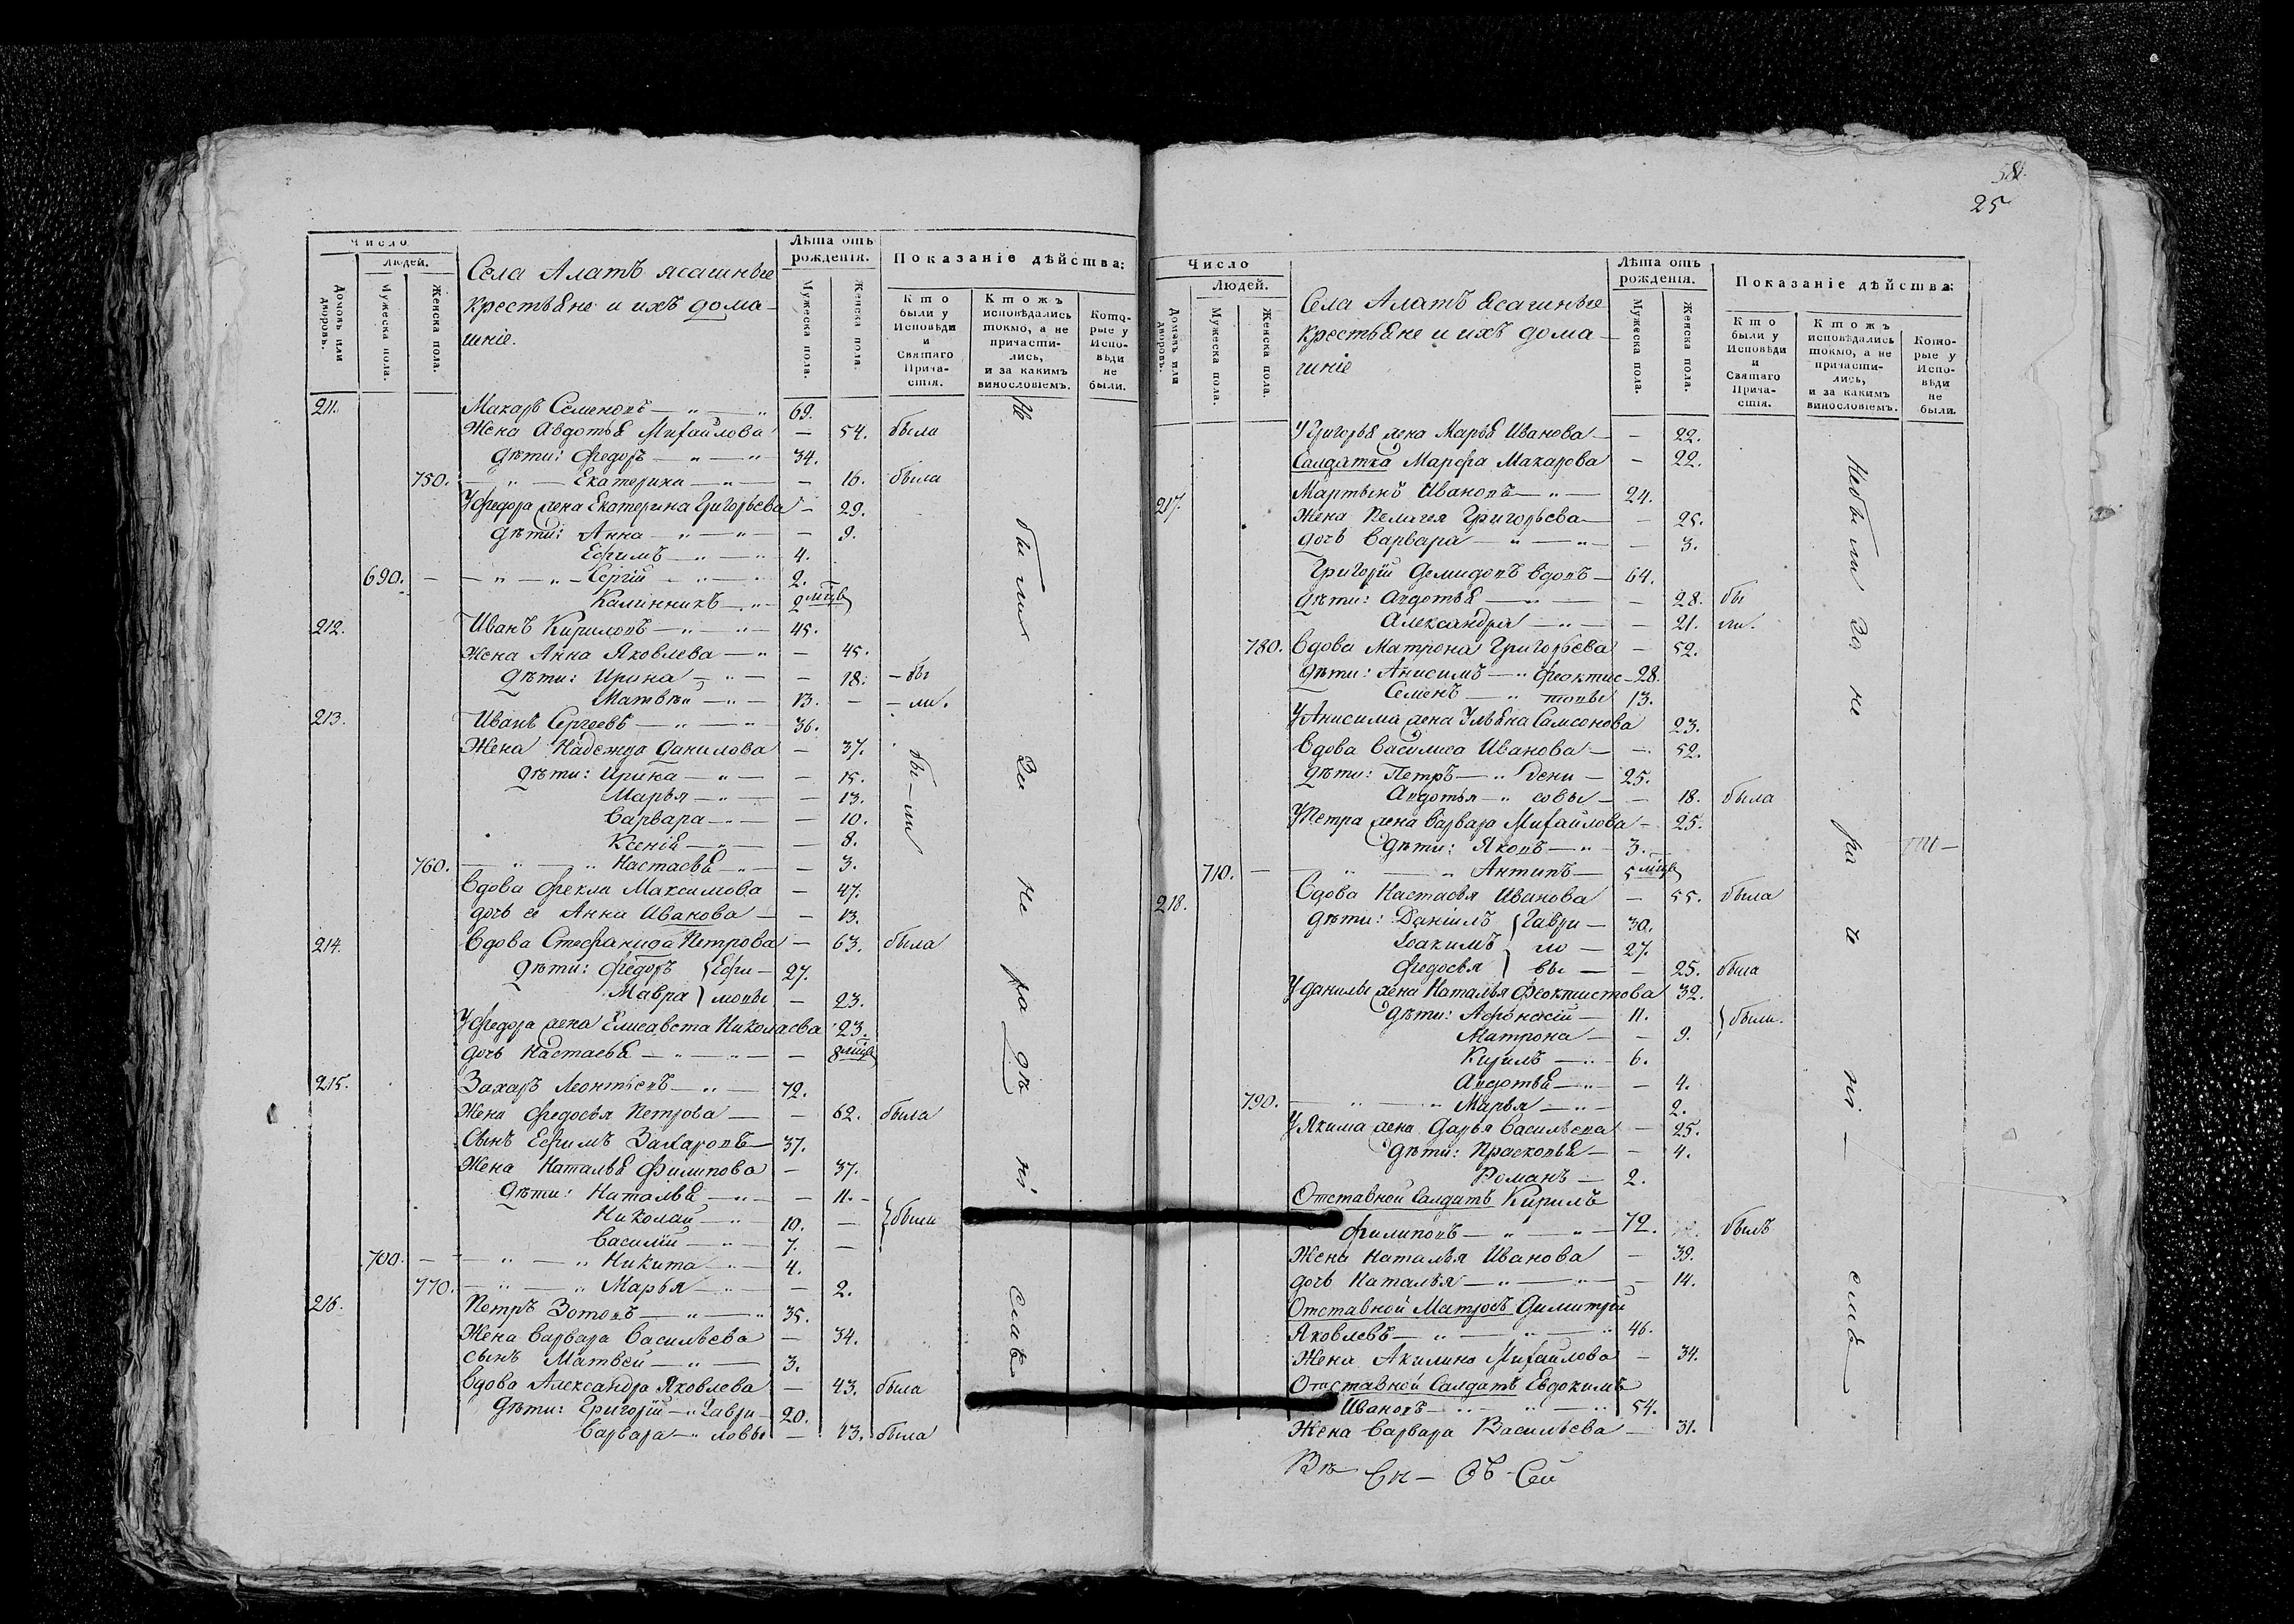 Число
Людей.
Домовъ или дворовъ.
Мужеска пола.
Женска пола.
Села Алатъ ясашные
крестьяне и ихъ дома-
шніе.
Лѣта отъ рожденія.
Мужеска пола.
Женска пола.
Показаніе дѣйства:
Кто были у Исповѣди и Святаго Причастія.
Ктожъ исповѣдались токмо, а не причастились, и за какимъ винословіемъ.
Которые у Исповѣди не были.
211. Макаръ Семеновъ 69.
Жена Авдотья Михайлова — 54. была
Дѣти: Федоръ 34.
750. Екатерина — 16. была
У Федора жена Екатерина Григорьева — 29.
Дѣти: Анна — 9.
Ефимъ 4.
690. Сергій 2.
Калинникъ 2 мѣцъ
212. Иванъ Кириловъ 45.
Жена Анна Яковлева — 45.
Дѣти: Ирина — 18. бы
Матвѣй 13. — ли.
213. Иванъ Сергеевъ 36.
Жена Надежда Данилова — 37.
Дѣти: Ирина — 15. бы-ли
Марья — 13.
Варвара — 10.
Ксенія — 8.
760. Настасья — 3.
Вдова Фекла Максимова — 47.
дочь ее Анна Иванова — 13.
214. Вдова Стефанида Петрова — 63. была
Дѣти: Федоръ } Ефи- 27.
Мавра } мовы — 23.
У Федора жена Елисавета Николаева 23.
дочь Настасья — 8 мѣцъ
215. Захаръ Леонтьевъ 72.
Жена Федосья Петрова — 62. была
Сынъ Ефимъ Захаровъ 37.
Жена Наталья Филипова — 37.
Дѣти: Наталья — 11.
Николай 10. — были
Василій 7. —
700. Никита 4.
770. Марья — 2.
216. Петръ Зотовъ 35.
Жена Варвара Васильева — 34.
сынъ Матвей 3.
Вдова Александра Яковлева — 43. была
Дѣти: Григорій Гаври- 20.
Варвара ловы — 13. была
Не были за не ра дѣ ні емъ
25
Число
Людей.
Домовъ или дворовъ.
Мужеска пола.
Женска пола.
Села Алатъ Ясашные
крестьяне и ихъ дома-
шніе
Лѣта отъ рожденія.
Мужеска пола.
Женска пола.
Показаніе дѣйства:
Кто были у Исповѣди и Святаго Причастія.
Ктожъ исповѣдались токмо, а не причастились, и за какимъ винословіемъ.
Которые у Исповѣди не были.
У Григорья жена Марья Иванова — 22.
Салдатка Марфа Макарова — 22.
217. Мартынъ Ивановъ 24.
Жена Пелагея Григорьева — 25.
дочь Варвара — 3.
Григорій Демидовъ вдовъ 64.
Дѣти: Авдотья — 28. бы
Александра — 21. ли.
780. Вдова Матрона Григорьева — 52.
Дѣти: Анисимъ Феоктис- 28.
Семенъ товы 13.
У Анисима жена Ульяна Самсонова 23.
Вдова Василиса Иванова — 52.
Дѣти: Петръ Дени- 25.
Авдотья совы — 18. была
У Петра жена Варвара Михайлова — 25.
Дѣти: Яковъ 3.
710. Антипъ 5 мѣцъ
218. Вдова Настасья Иванова — 55. была
Дѣти: Даніилъ } Гаври- 30.
Іоакимъ } ло 27.
Федосья } вы — 25. была
У Данилы жена Наталья Феоктистова 32.
Дѣти: Афонасій 11. } были.
Матрона — 9.
Кирилъ 6.
Авдотья — 4.
790. Марья 2.
У Якима жена Дарья Васильева — 25.
Дѣти: Прасковья — 4.
Романъ 2.
Отставной Салдатъ Кирилъ
Филиповъ 72. былъ
Жена Наталья Иванова — 39.
дочь Наталья — 14.
Отставной Матросъ Димитрій
Яковлевъ 46.
Жена Акилина Михайлова — 34.
Отставной Салдатъ Евдокимъ
Ивановъ 54.
Жена Варвара Васильева — 31.
Не были за не ра
ні емъ